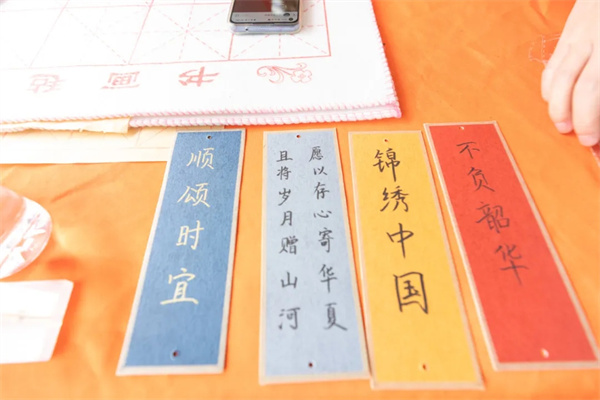 书画毡
顺颂时宜
愿以存心寄华夏
且将岁月赠山河
锦绣中国
不负韶华